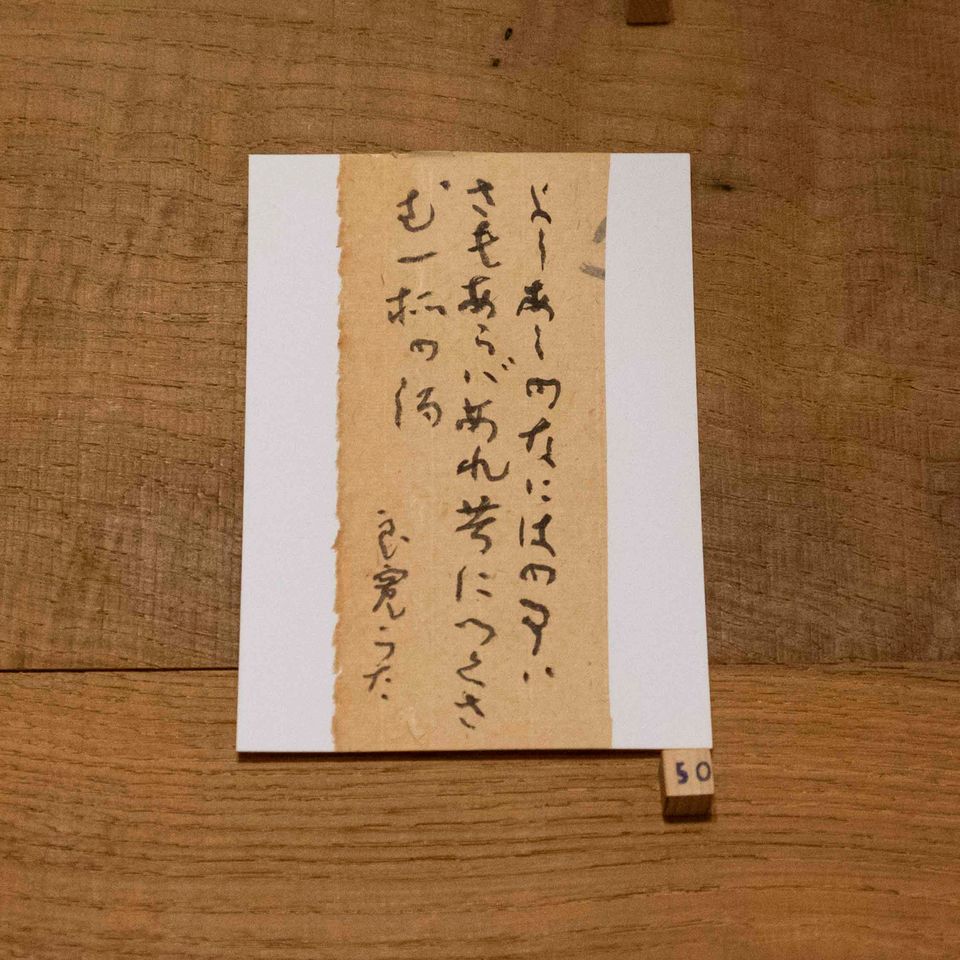 よしあしのなにはの事ハ
さもあらバあれ共につくさ
む一杯の酒
良寛うた
50